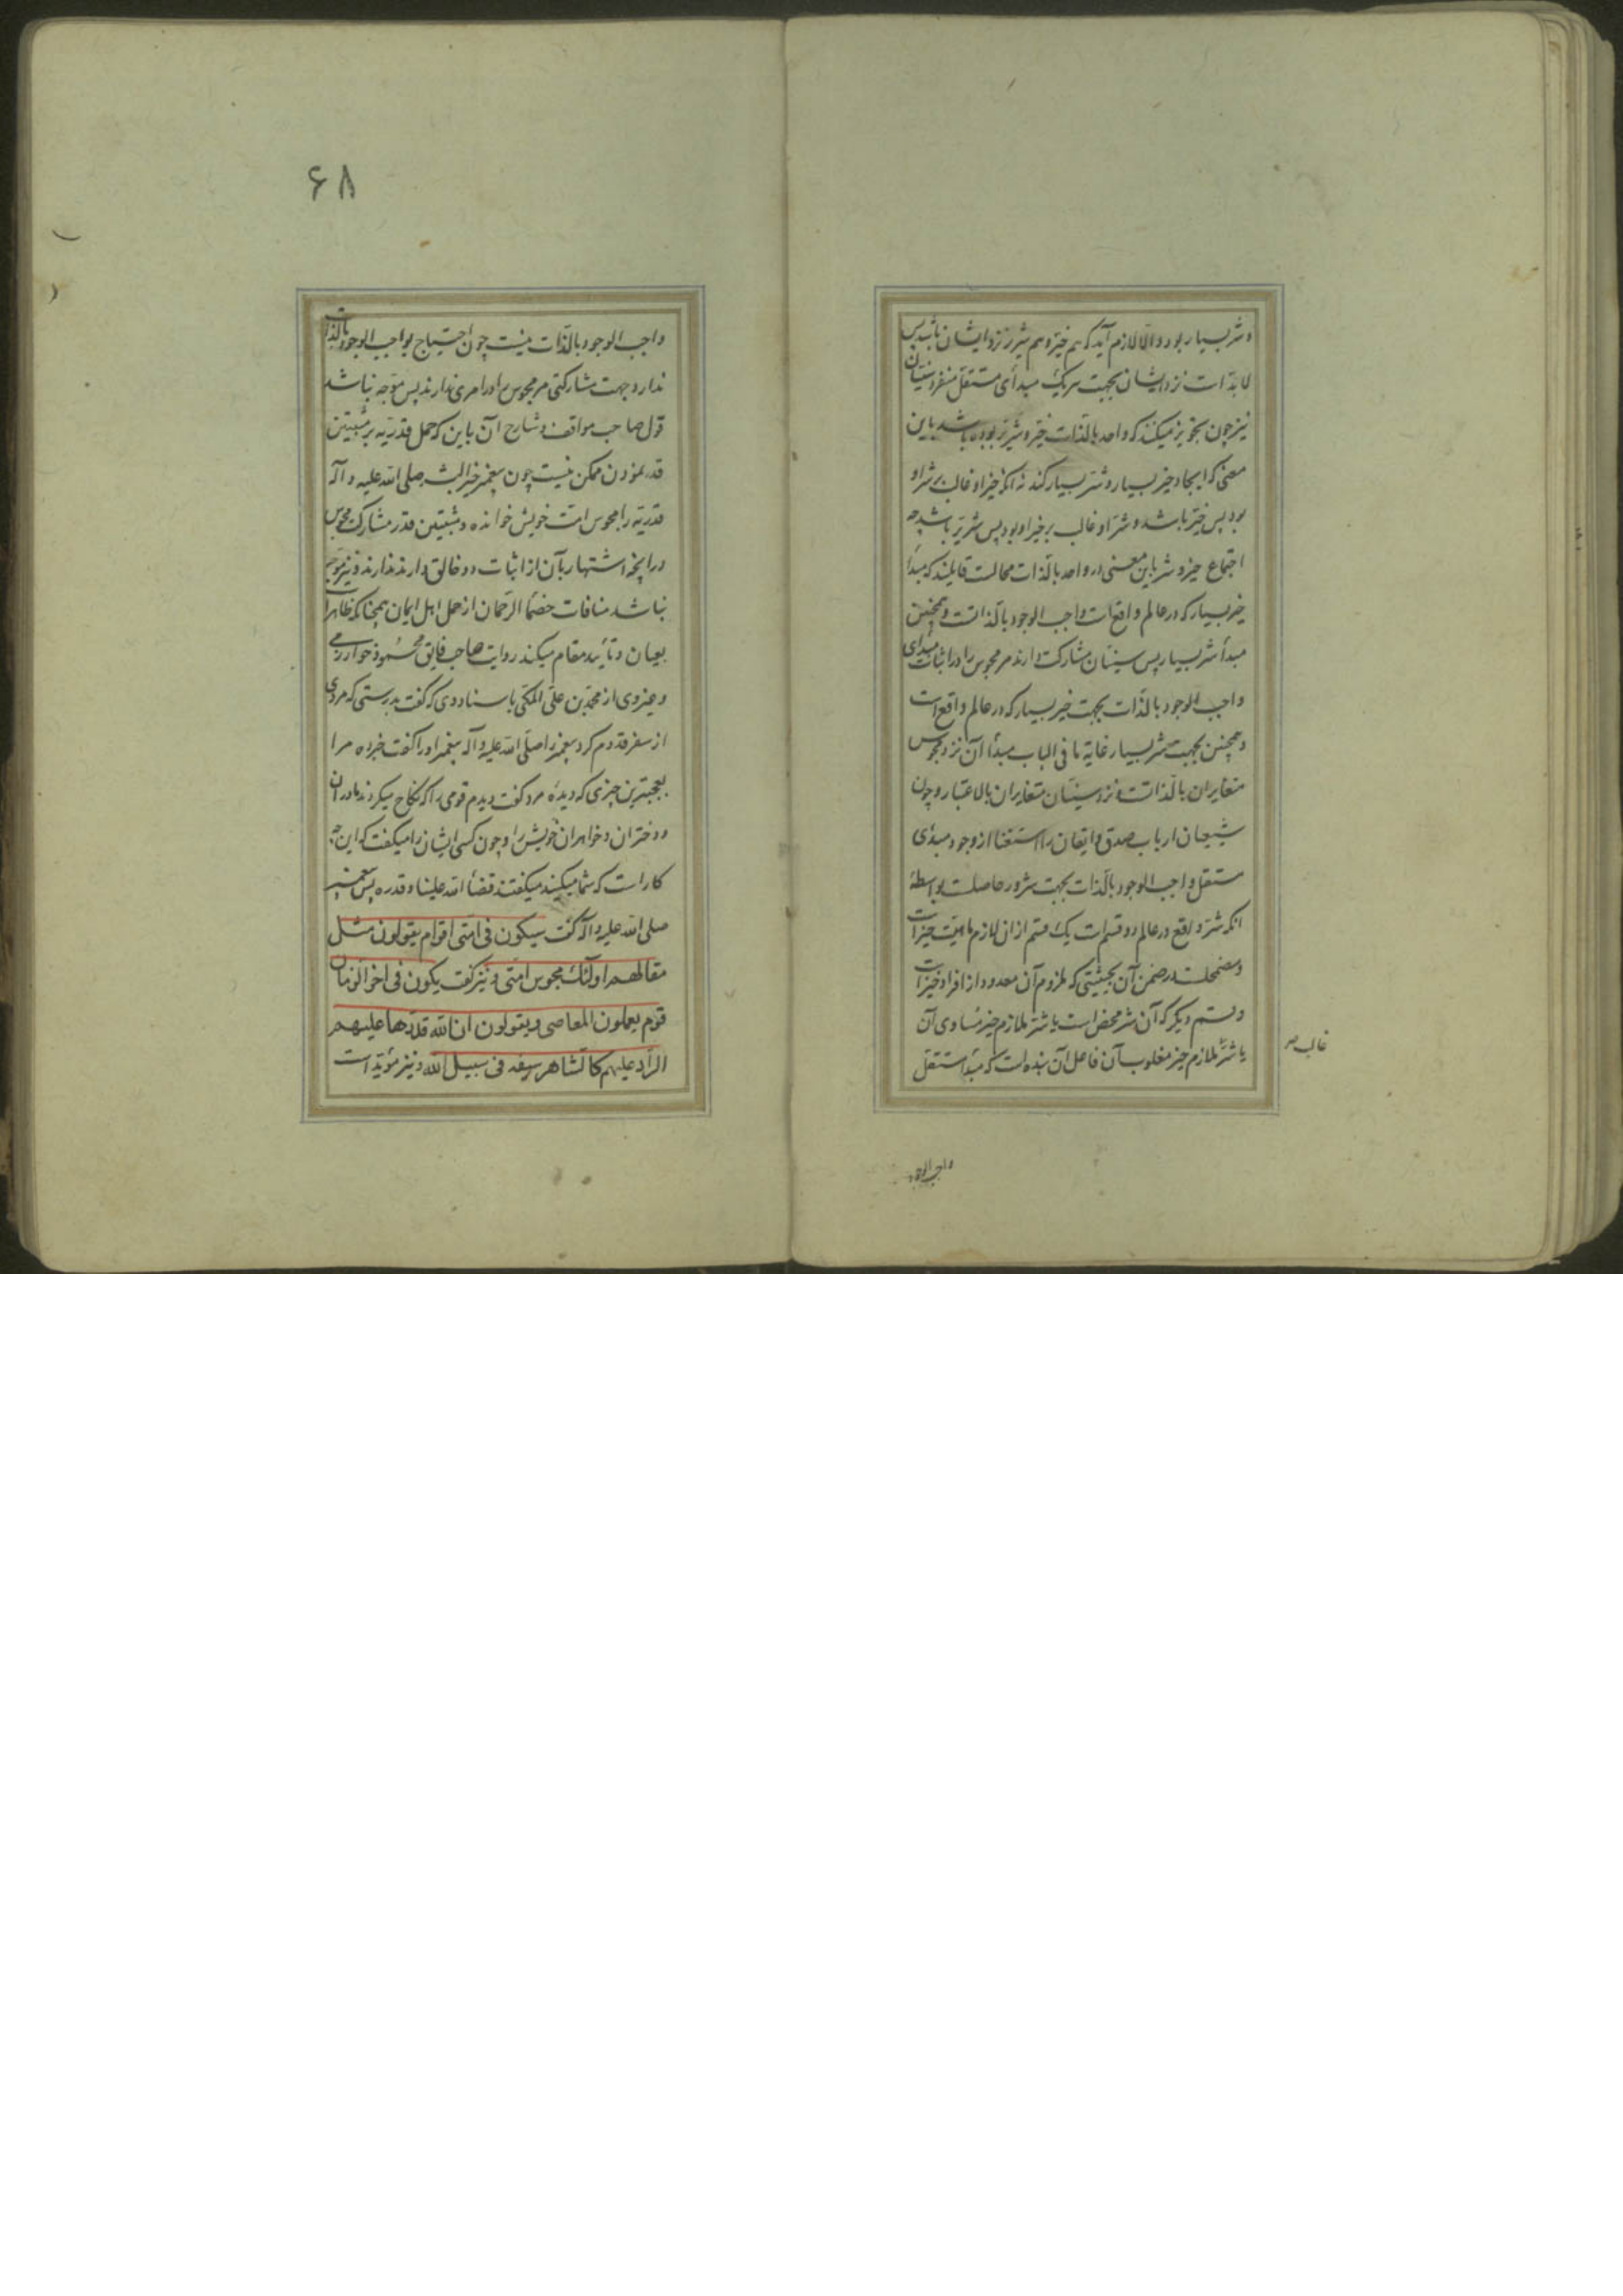 و شر بسیار بود و الا لازم آید که هم خیّر و هم شریر نزد ایشان باشد پس
لابد است نزد ایشان بجهت هر یک مبدأی مستقل منفرد و سنیان
نیز چون تجویز میکنند که واحد بالذات خیّر و شریر بوده باشد باین
معنی که ایجاد خیر بسیار و شر بسیار کند نه آنکه خیر او غالب بر شر او
بود پس خیّر باشد و شر او غالب بر خیر او بود پس شریر باشد چه
اجتماع خیر و شر باین معنی در واحد بالذات محالست قایلند که مبدأ
خیر بسیار که در عالم واقع است واجب الوجود بالذاتست و همچنین
مبدأ شر بسیار پس سنیان مشارکت دارند مر مجوس را در اثبات مبدأی
واجب الوجود بالذات بجهت خیر بسیار که در عالم واقع است
و همچنین بجهت شر بسیار غایة ما فی الباب مبدأ آن نزد مجوس
متغایران بالذاتست و نزد سنیان متغایران بالاعتبار و چون
شیعیان ارباب صدق و ایقان را استغنا از وجود مبدئی
مستقل واجب الوجود بالذات بجهت شرور حاصلست بواسطهٔ
آنکه شر واقع در عالم دو قسم است یک قسم از آن لازم ماهیت خیرات
و مضمحلست در ضمن آن بحیثیتی که ملزوم آن معدود از افراد خیرات
و قسم دیگر که آن شر محض است یا شر ملازم خیر مساوی آن
یا شر ملازم خیر مغلوب آن فاعل آن بنده است که مبدأ مستقل
غالب صح
واجب الوجود
۶۸
واجب الوجود بالذات نیست چون احتیاج بواجب الوجود بالذات
ندارد و جهت مشارکتی مر مجوس را در امری ندارند پس موجّه نباشد
قول صاحب مواقف و شارح آن باین که حمل قدریه بر مثبتین
قدر نمودن ممکن نیست چون پیغمبر خیر البشر صلی الله علیه و آله
قدریه را مجوس امت خویش خوانده و مثبتین قدر مشارکت مجوس
در آنچه اشتهار بآن از اثبات دو خالق دارند ندارند و نیز موجّه
نباشد منافات خصماء الرحمان از حمل اهل ایمان همچنانکه ظاهر است
بعیان و تأیید مقام میکند روایت صاحب فایق محمود خوارزمی
و غیر وی از محمد بن علی المکی باسناد وی که گفت بدرستی که مردی
از سفر قدوم کرد پیغمبر را صلی الله علیه و آله پیغمبر او را گفت خبر ده مرا
بعجبترین چیزی که دیدهٔ مرد گفت دیدم قومی را که نکاح میکردند مادران
و دختران و خواهران خویش را و چون کسی ایشان را میگفت که این چه
کار است که شما میکنید میگفتند قضاء الله علینا و قدره پس پیغمبر
صلی الله علیه و آله گفت سیکون فی امتی اقوام یقولون مثل
مقالهم اولئک مجوس امتی و نیز گفت یکون فی اخر الزمان
قوم یعملون المعاصی و یقولون ان الله قدّرها علیهم
الرّاد علیهم کالشاهر سیفه فی سبیل الله و نیز مؤید است